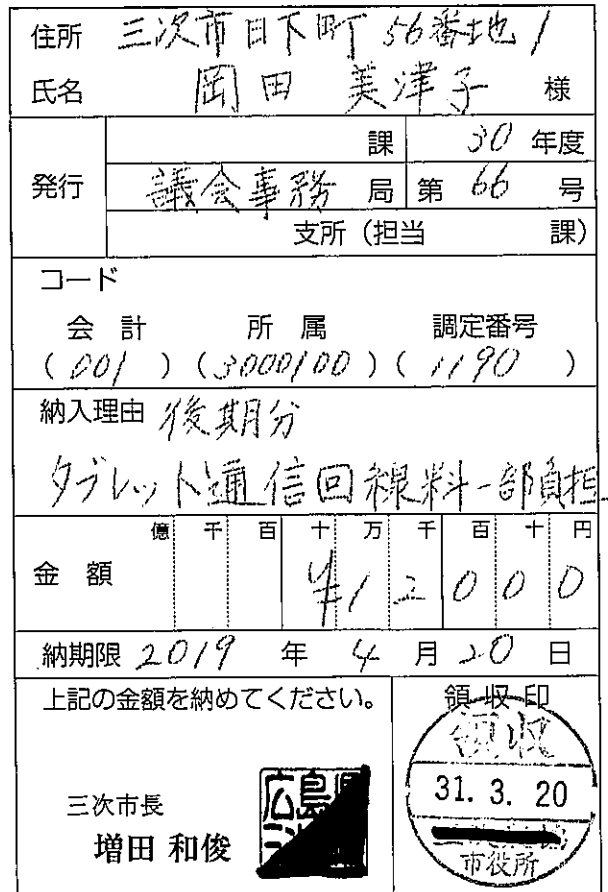 住所 三次市日下町56番地1
氏名 岡田 美津子 様
発行
課 30年度
議会事務局 第66号
支所(担当 課)
コード
会計 所属 調定番号
(001)(3000100)(1190)
納入理由 後期分
タブレット通信回線料一部負担
億 千 百 十 万 千 百 十 円
金額 ¥12000
納期限 2019年4月20日
上記の金額を納めてください。
領収印
領収
31. 3. 20
市役所
三次市長
増田 和俊
広島県